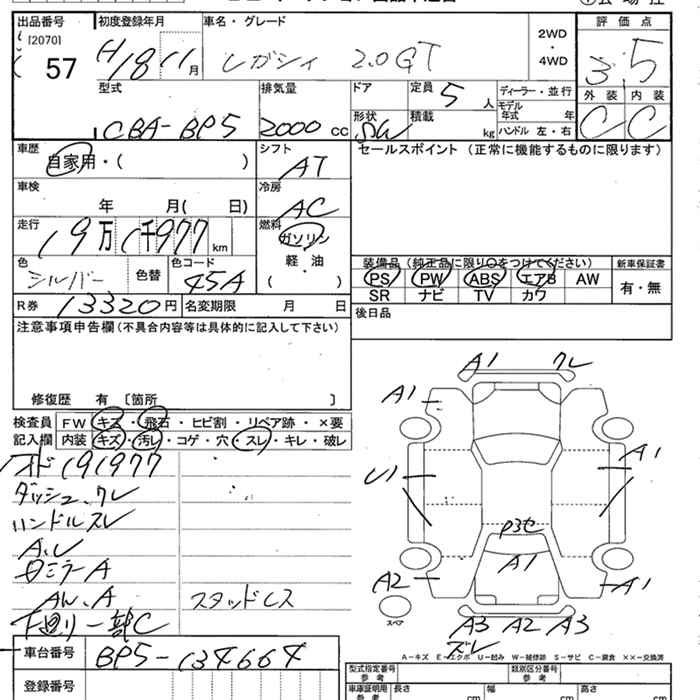 出品番号 初度登録年月 車名・グレード 評価点
[2070] 57
H18 11月 レガシィ 2.0GT
2WD・4WD
3.5
外装 内装
C C
型式 排気量 ドア 定員 5人 ディーラー・並行
CBA-BP5 2000cc
形状 SW 積載 kg
モデル年式 年
ハンドル 左・右
車歴 シフト セールスポイント (正常に機能するものに限ります)
自家用・( ) AT
車検 冷房
年 月( 日) AC
走行 燃料
19万1千977km ガソリン
軽・油
( )
色 色替 色コード
シルバー 45A
装備品 (純正品に限り○をつけてください) 新車保証書
PS PW ABS エアB AW 有・無
SR ナビ TV カワ
R券 13320円 名変期限 月 日 後日品
注意事項申告欄(不具合内容等は具体的に記入して下さい)
修復歴 有 〔箇所 〕
検査員 FW キズ・飛石・ヒビ割・リペア跡・×要
記入欄 内装 キズ・汚レ・コゲ・穴・スレ・キレ・破レ
191977
ダッシュ、ワレ
ハンドルスレ
A、U
Aル、A スタッドレス
下廻り一部C
車台番号 BP5-134664
登録番号
A1 ワレ
A1
A1
U1
P3セ
A1
A2 A1
スペア
A3 A2 A3
ズレ
A-キズ E-エクボ U-凹み W-補修跡 S-サビ C-腐食 ××-交換済
型式指定番号 参考 類別区分番号 参考
車庫証明用 参考 長さ cm 幅 cm 高さ cm